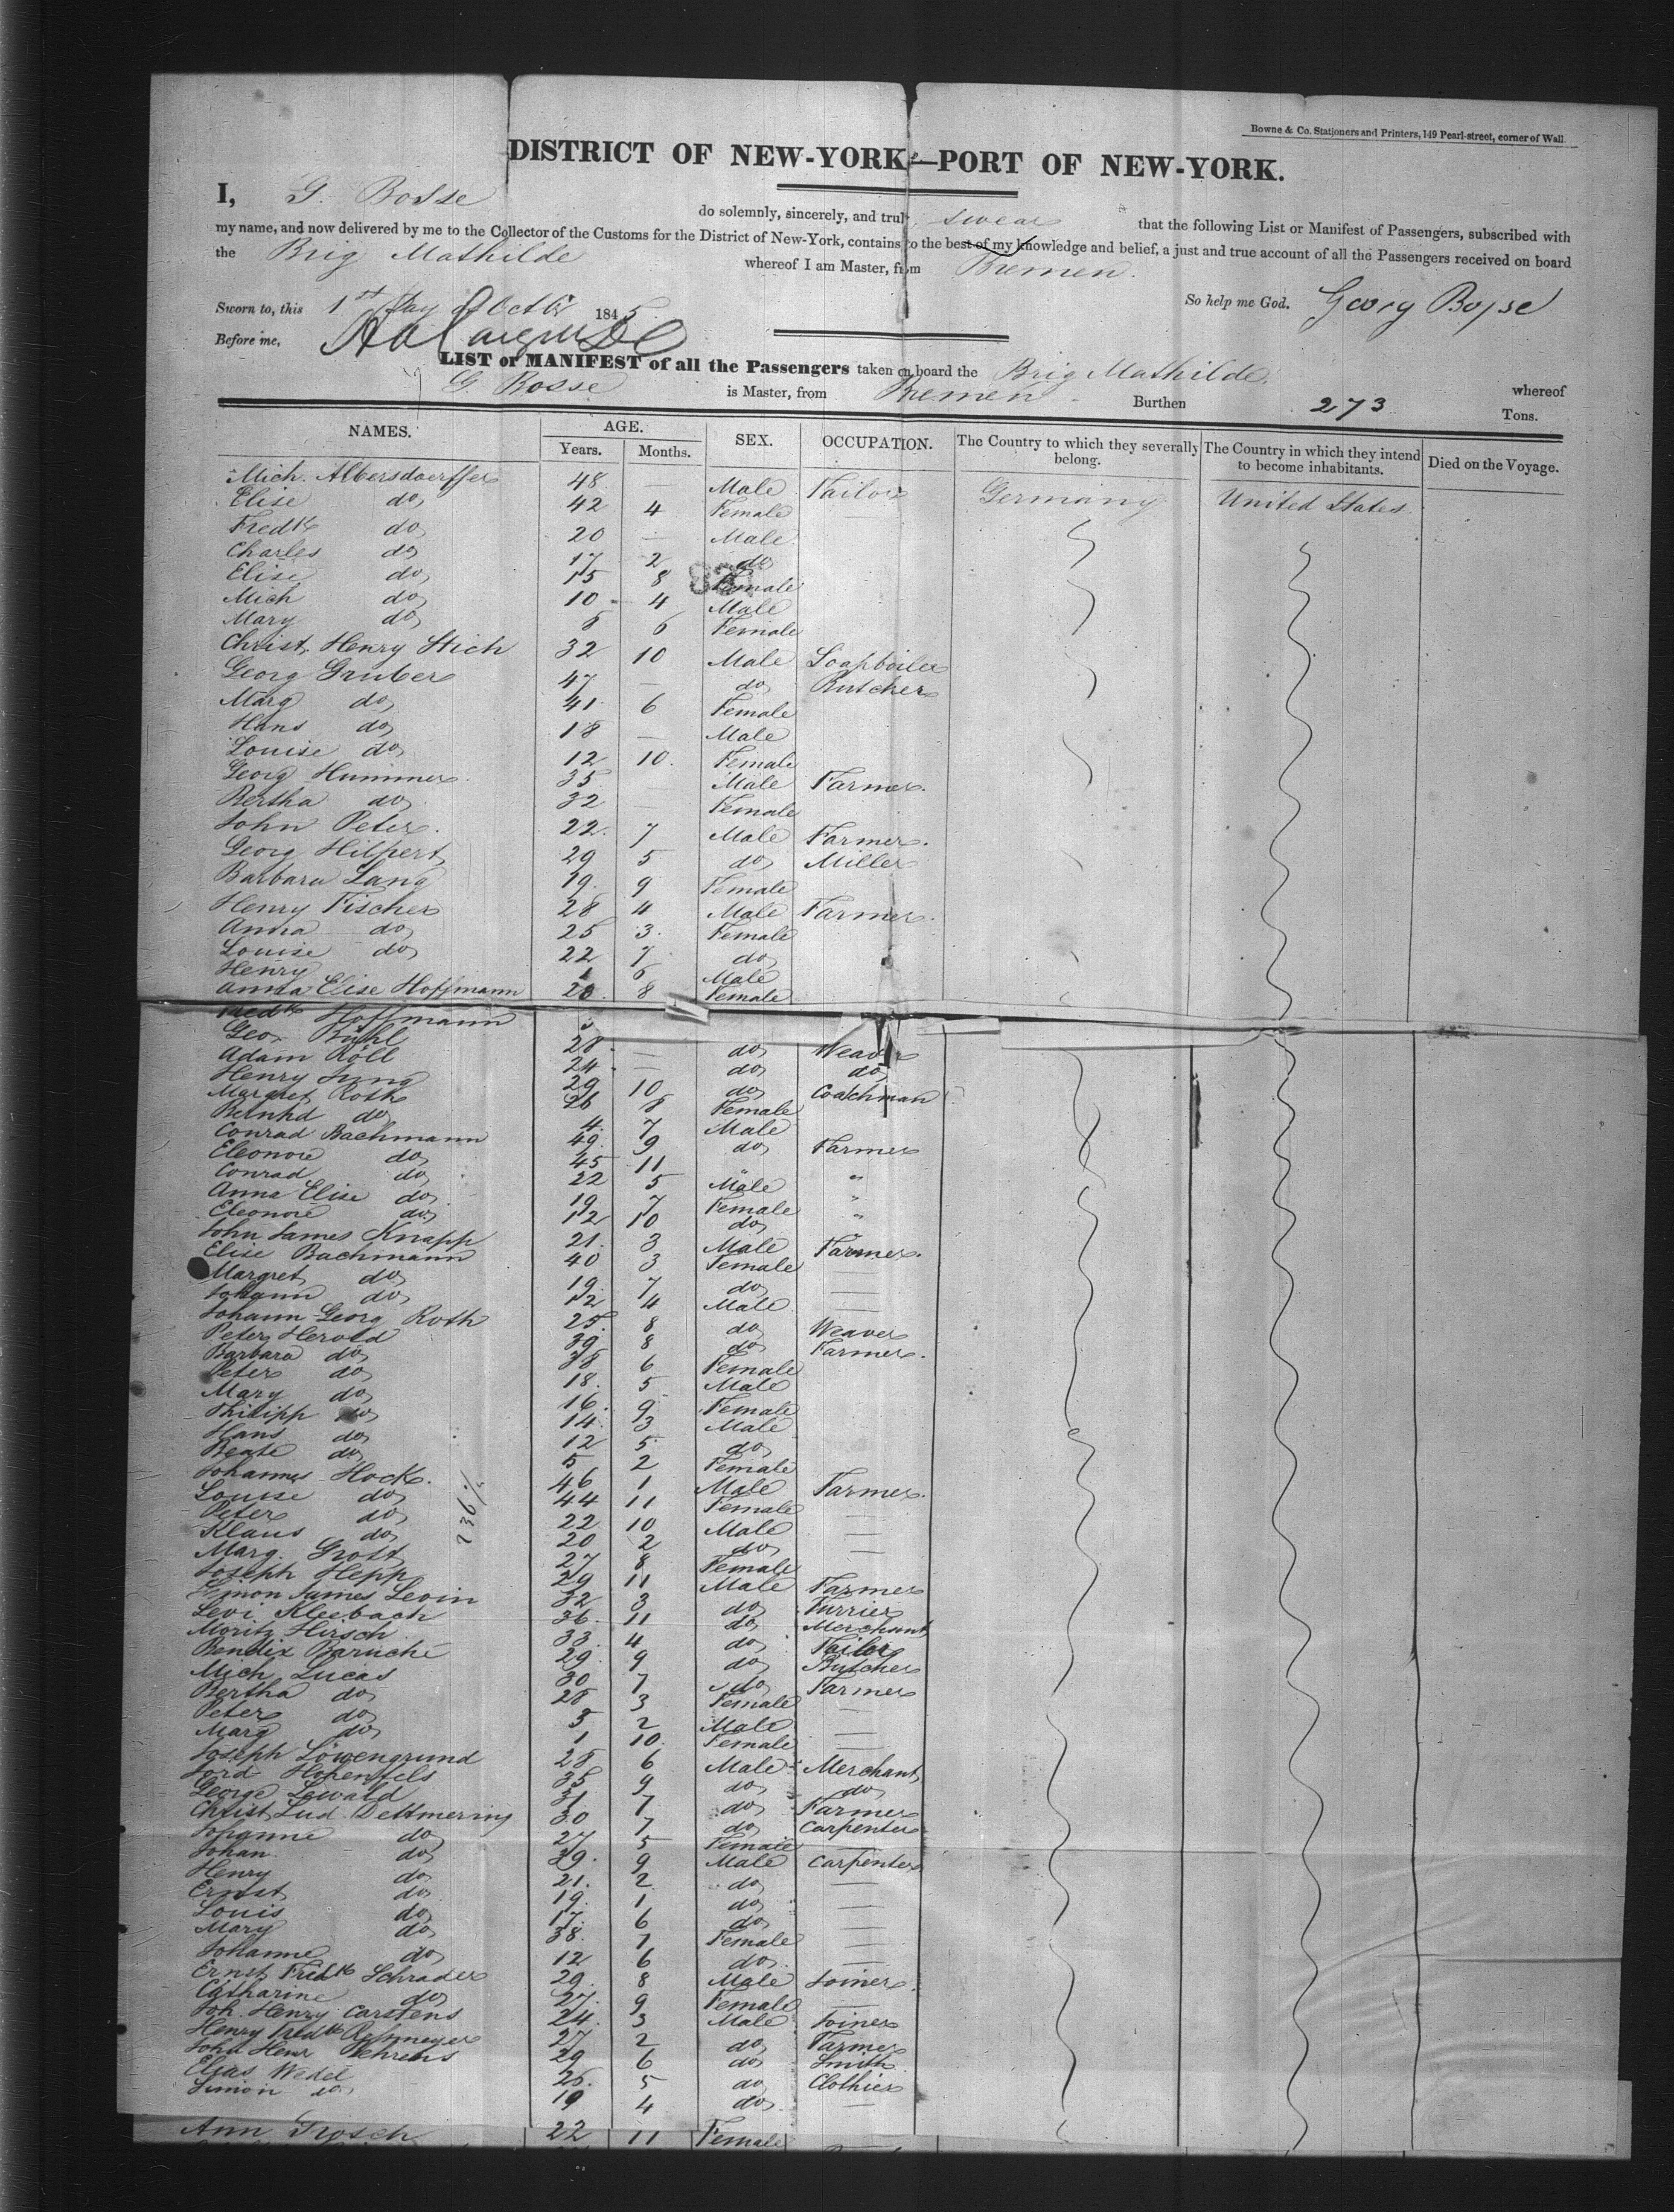 Bowne & Co. Stationers and Printers, 149 Pearl-street, corner of Wall.
DISTRICT OF NEW-YORK—PORT OF NEW-YORK.
I, G. Bosse do solemnly, sincerely, and truly swear that the following List or Manifest of Passengers, subscribed with
my name, and now delivered by me to the Collector of the Customs for the District of New-York, contains to the best of my knowledge and belief, a just and true account of all the Passengers received on board
the Brig Mathilde whereof I am Master, from Bremen.
Sworn to, this 1st Day of Octbr 1845. So help me God. Georg Bosse
Before me,
LIST or MANIFEST of all the Passengers taken on board the Brig Mathilde whereof
G. Bosse is Master, from Bremen Burthen 273 Tons.
NAMES. AGE. Years. Months. SEX. OCCUPATION. The Country to which they severally belong. The Country in which they intend to become inhabitants. Died on the Voyage.
Mich. Albersdoerffer 48 — Male Tailor Germany United States
Elise do 42 4 Female
Fredk do 20 — Male
Charles do 17 2 do
Elise do 15 8 Female
Mich do 10 4 Male
Mary do 8 6 Female
Christ. Henry Stich 32 10 Male Soapboiler
Georg Gruber 47 — do Butcher
Marg do 41 6 Female
Hans do 18 — Male
Louise do 12 10 Female
Georg Hummer 35 Male Farmer
Bertha do 32 — Female
John Peter 22 7 Male Farmer
Georg Hilpert 29 5 do Miller
Barbara Lang 19 9 Female
Henry Fischer 28 4 Male Farmer
Anna do 25 3 Female
Louise do 22 7 do
Henry 6 Male
Anna Elise Hoffmann 20 8 Female
Fredk Hoffmann
Geo. Bühl 28 — do Weaver
Adam Röll 24 — do do
Henry Jung 29 10 do Coachman
Margret Roth 26 8 Female
Bernhd do 4 7 Male
Conrad Bachmann 49 9 do Farmer
Eleonore do 45 11 "
Conrad do 22 5 Male "
Anna Elise do 19 7 Female "
Eleonore do 12 10 do
John James Knapp 21 3 Male Farmer
Elise Bachmann 40 3 Female —
Margret do 19 7 do —
Johann do 12 4 Male —
Johann Georg Roth 25 8 do Weaver
Peter Herold 39 8 do Farmer
Barbara do 38 6 Female
Peter do 18 5 Male
Mary do 16 9 Female
Philipp do 14 3 Male
Hans do 12 5 do
Beate do 5 2 Female
Johannes Hock 46 1 Male Farmer
Louise do 44 11 Female
Peter do 22 10 Male —
Klaus do 20 2 do —
Marg. Grott 27 8 Female
Joseph Hepp 29 11 Male Farmer
Simon James Levin 32 3 do Furrier
Levi Kleebach 36 11 do Merchant
Moritz Hirsch 33 4 do Tailor
Bendix Baruche 29 9 do Butcher
Mich Lucas 30 7 do Farmer
Bertha do 28 3 Female —
Peter do 3 2 Male —
Marg do 1 10 Female —
Joseph Löwengrund 28 6 Male Merchant
Hohenfels 35 9 do do
George Lewald 31 7 do Farmer
Christ Lud. Dettmering 30 7 do Carpenter
Johanne do 27 5 Female —
Johan do 39 9 Male Carpenter
Henry do 21 2 do —
Ernst do 19 1 do
Louis do 17 6 do —
Mary do 38 7 Female —
Johanne do 12 6 do —
Ernst Fredk Schrader 29 8 Male Joiner
Catharine do 27 9 Female —
Joh. Henry Carstens 24 3 Male Joiner
Henry Fredk 27 2 do Farmer
John Henr Behrens 29 6 do Smith
Elias Wedel 25 5 do Clothier
Simon do 19 4 do —
Ann Grosch 22 11 Female